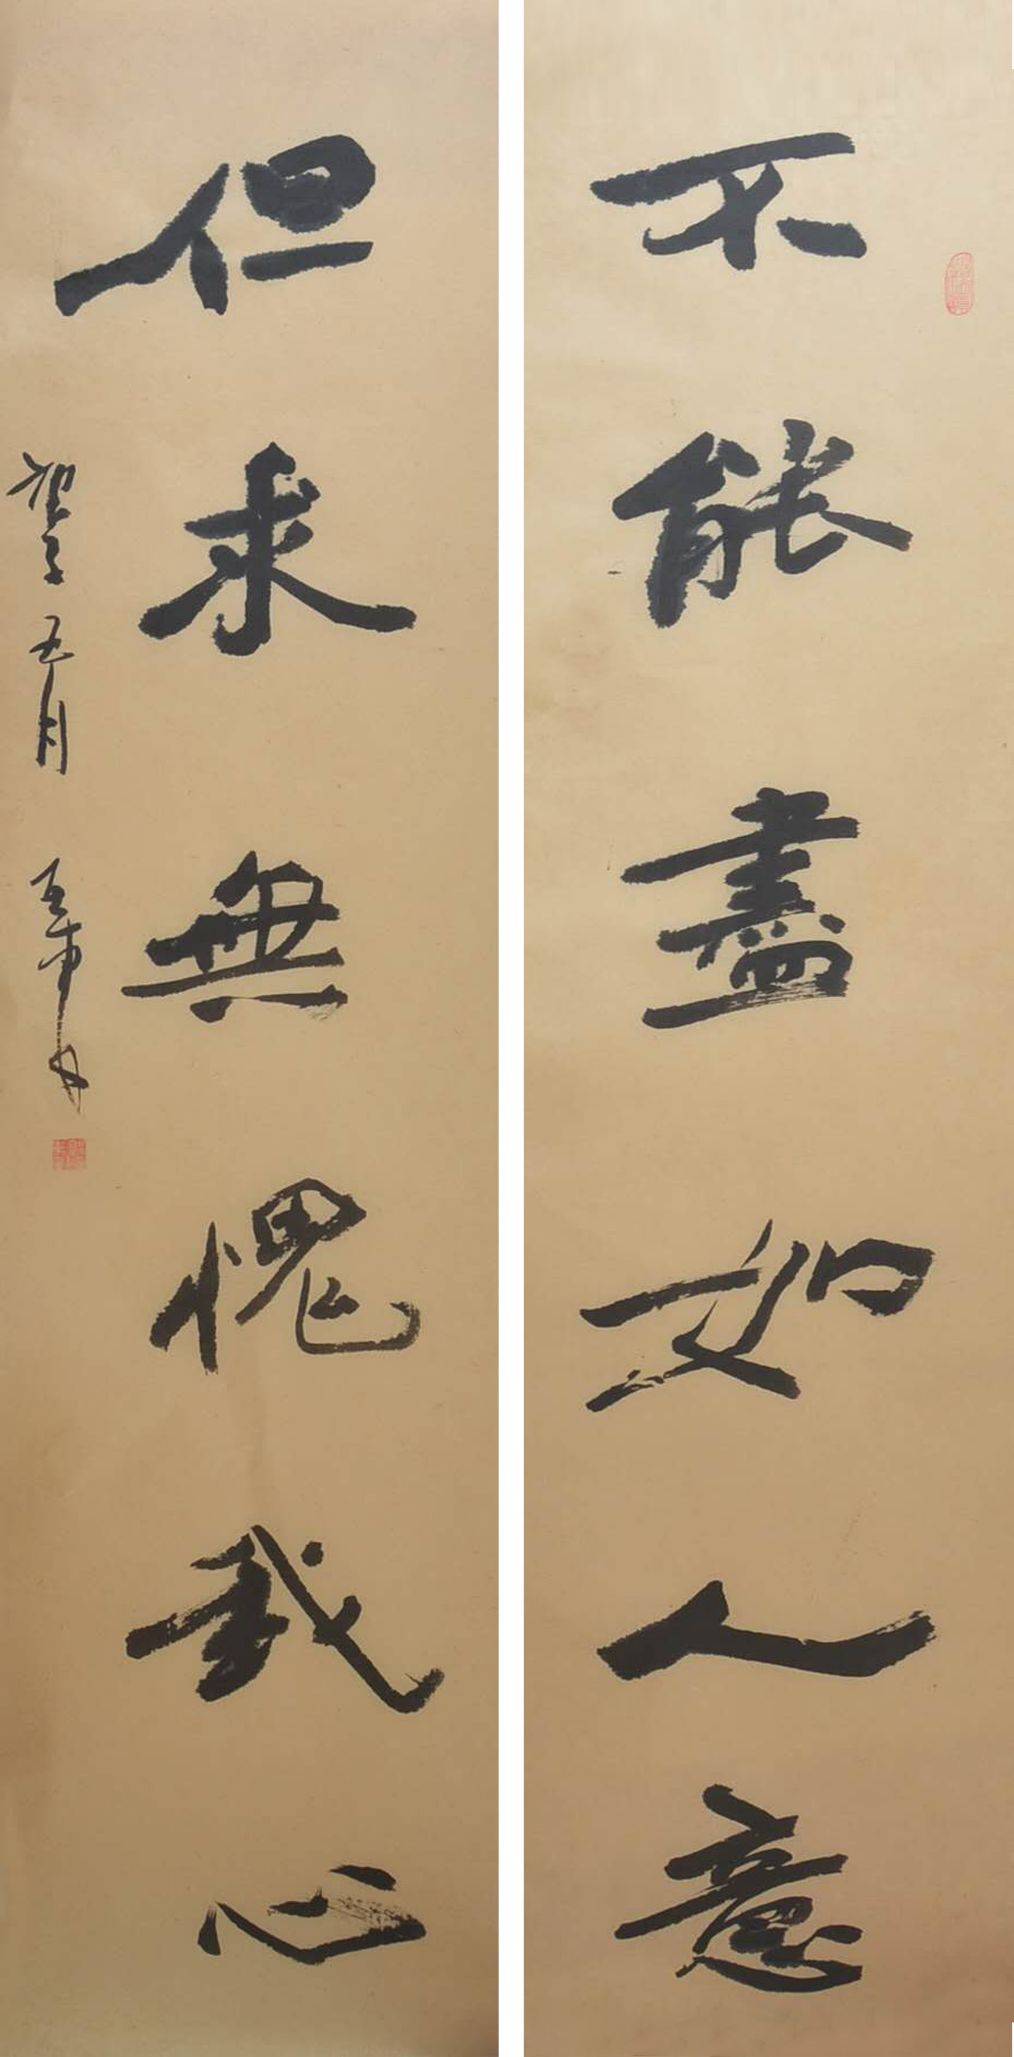 不能盡如人意
但求無愧我心
五月